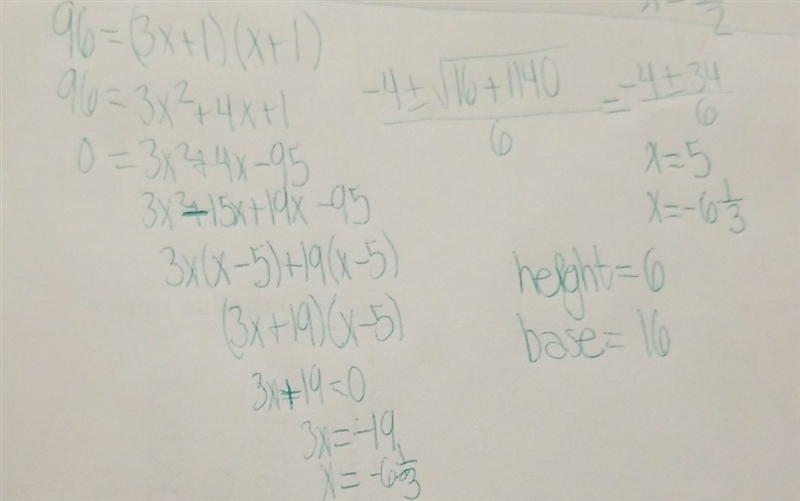 96 = (3x+1)(x+1)
96 = 3x²+4x+1
0 = 3x²+4x-95
3x²-15x+19x-95
3x(x-5)+19(x-5)
(3x+19)(x-5)
3x+19=0
3x=-19
x=-6 1/3
(-4±√(16+1140))/6 = (-4±34)/6
x=5
x=-6 1/3
height=6
base=16